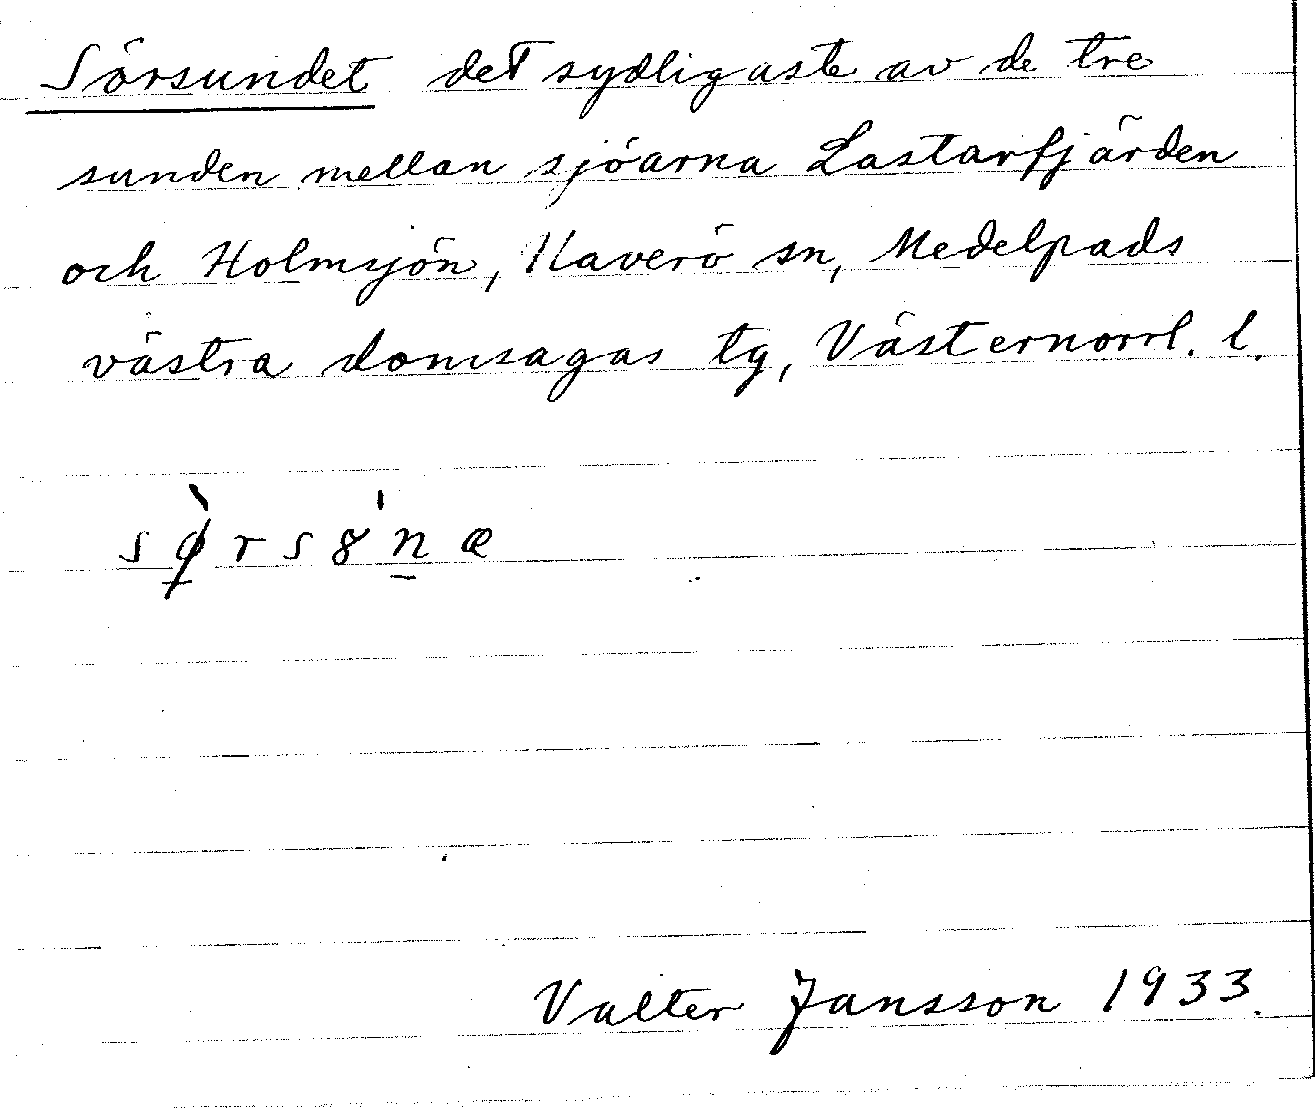 Sörsundet det sydligaste av de tre
sunden mellan sjöarna Lastarfjärden
och Holmsjön, Haverö sn, Medelpads
västra domsagas tg, Västernorrl. l.
Valter Jansson 1933.